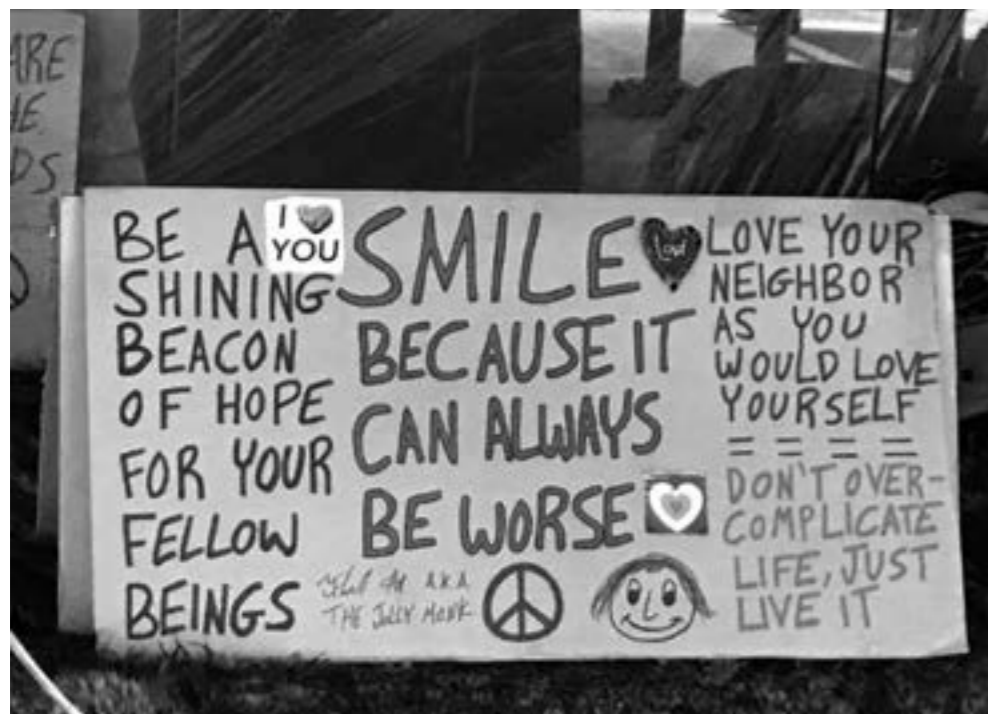 ARE
HE
DS
BE A
SHINING
BEACON
OF HOPE
FOR YOUR
FELLOW
BEINGS
I
YOU
SMILE
BECAUSE IT
CAN ALWAYS
BE WORSE
A.K.A
THE JOLLY MONK
Love
LOVE YOUR
NEIGHBOR
AS YOU
WOULD LOVE
YOURSELF
= = = =
DON'T OVER-
COMPLICATE
LIFE, JUST
LIVE IT